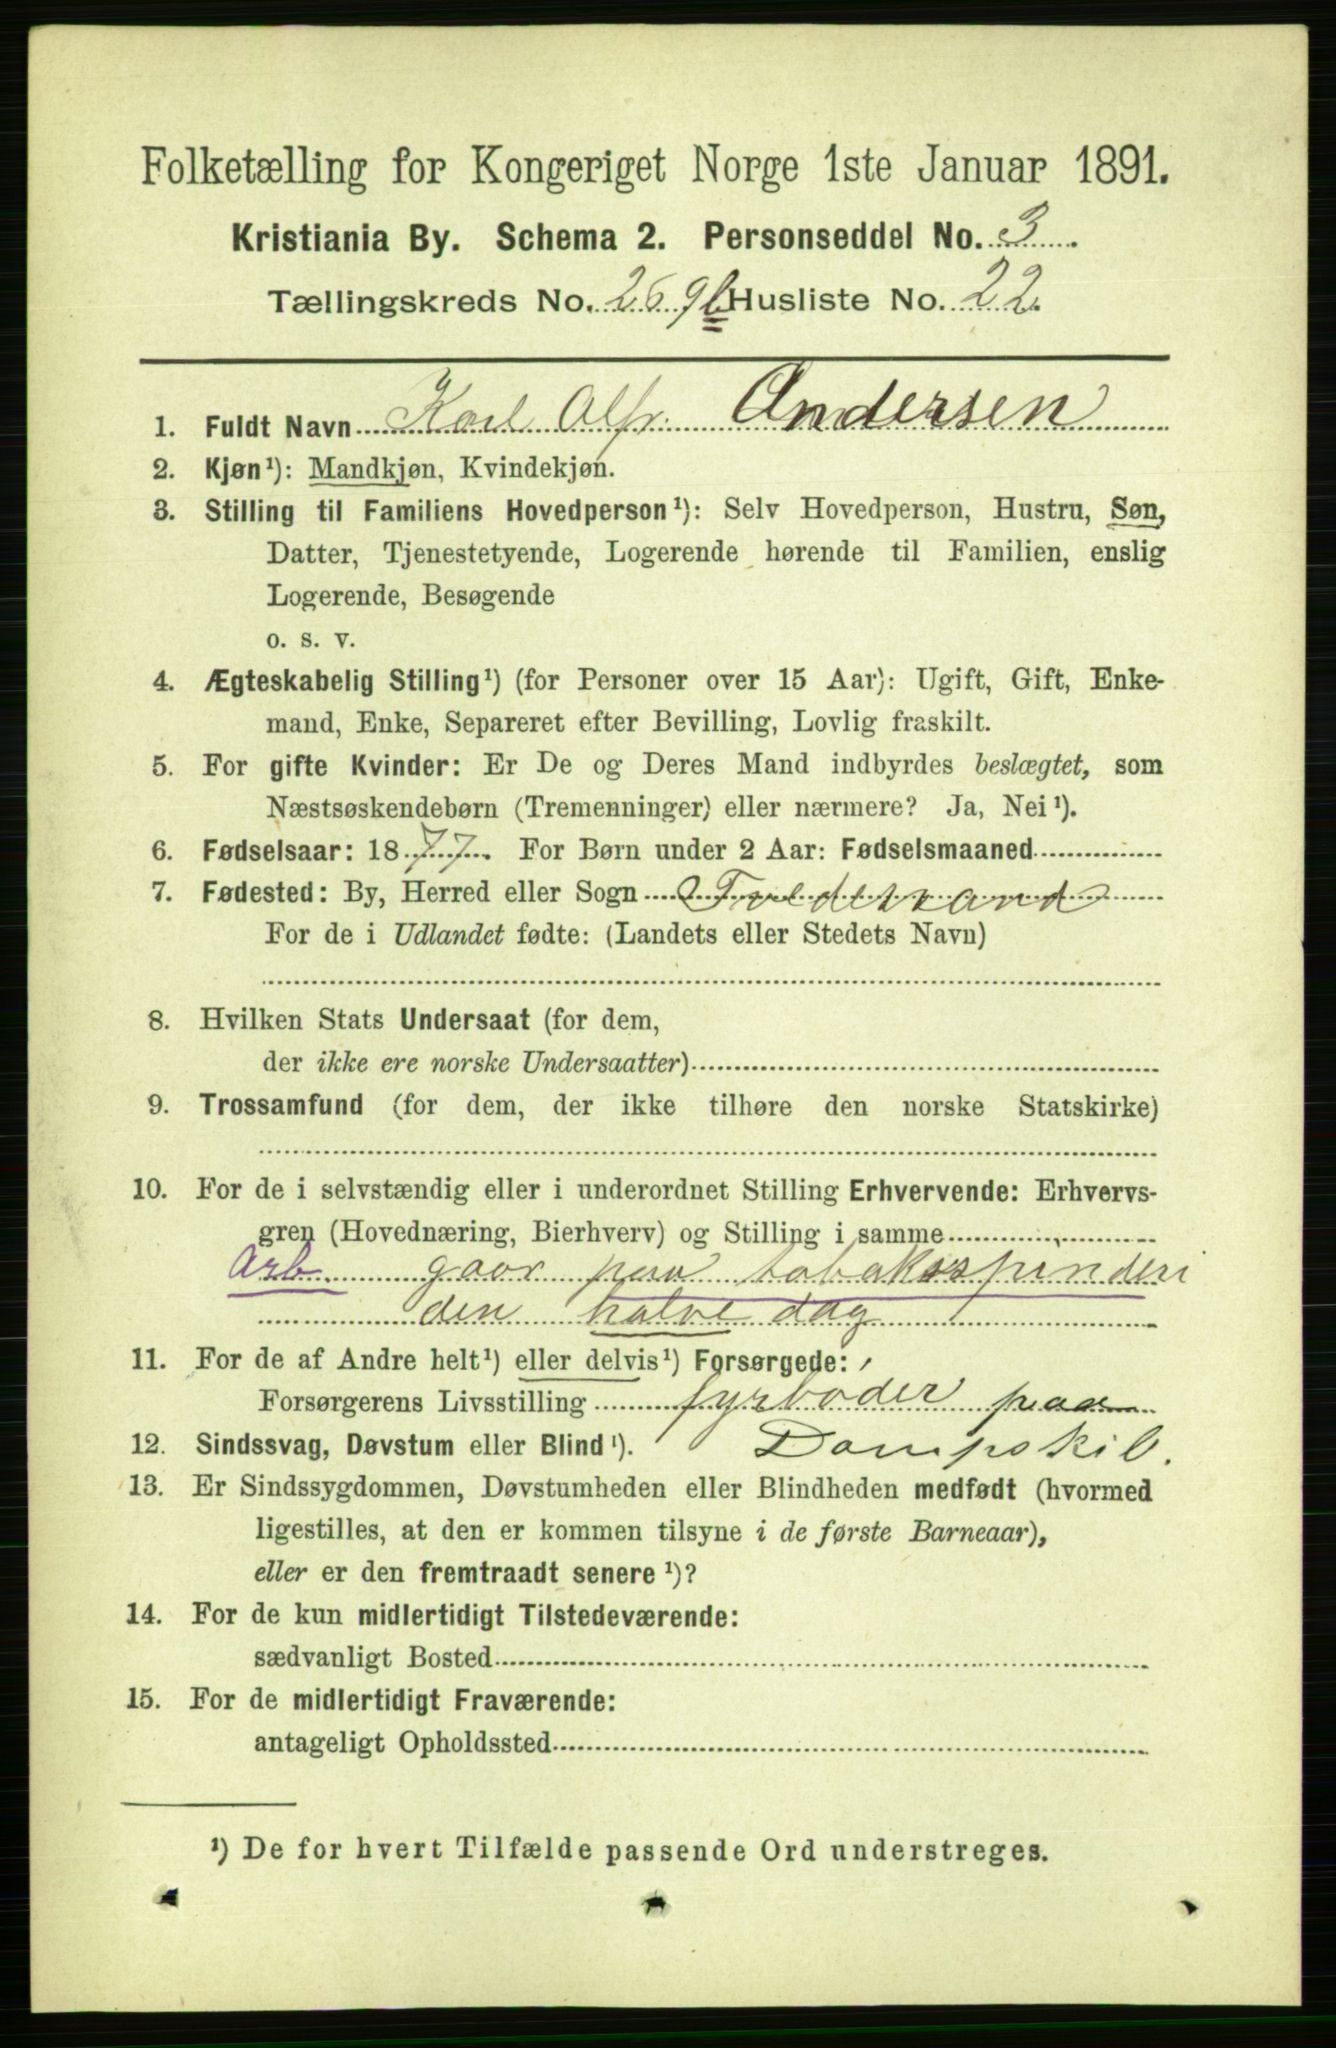 Folketælling for Kongeriget Norge 1ste Januar 1891.
Kristiania By. Schema 2. Personseddel No. 3.
Tællingskreds No. 269b Husliste No. 22.
1. Fuldt Navn Karl Alfr. Andersen
2. Kjøn¹): Mandkjøn, Kvindekjøn.
3. Stilling til Familiens Hovedperson¹): Selv Hovedperson, Hustru, Søn,
Datter, Tjenestetyende, Logerende hørende til Familien, enslig
Logerende, Besøgende
o. s. v.
4. Ægteskabelig Stilling¹) (for Personer over 15 Aar): Ugift, Gift, Enke-
mand, Enke, Separeret efter Bevilling, Lovlig fraskilt.
5. For gifte Kvinder: Er De og Deres Mand indbyrdes beslægtet, som
Næstsøskendebørn (Tremenninger) eller nærmere? Ja, Nei¹).
6. Fødselsaar: 1877. For Børn under 2 Aar: Fødselsmaaned
7. Fødested: By, Herred eller Sogn
For de i Udlandet fødte: (Landets eller Stedets Navn)
8. Hvilken Stats Undersaat (for dem,
der ikke ere norske Undersaatter)
9. Trossamfund (for dem, der ikke tilhøre den norske Statskirke)
10. For de i selvstændig eller i underordnet Stilling Erhvervende: Erhvervs-
gren (Hovednæring, Bierhverv) og Stilling i samme
Arb. gaar paa tobaksspinderi
den halve dag
11. For de af Andre helt¹) eller delvis¹) Forsørgede:
Forsørgerens Livsstilling fyrbøder paa
12. Sindssvag, Døvstum eller Blind¹). Dampskib.
13. Er Sindssygdommen, Døvstumheden eller Blindheden medfødt (hvormed
ligestilles, at den er kommen tilsyne i de første Barneaar),
eller er den fremtraadt senere¹)?
14. For de kun midlertidigt Tilstedeværende:
sædvanligt Bosted
15. For de midlertidigt Fraværende:
antageligt Opholdssted
¹) De for hvert Tilfælde passende Ord understreges.